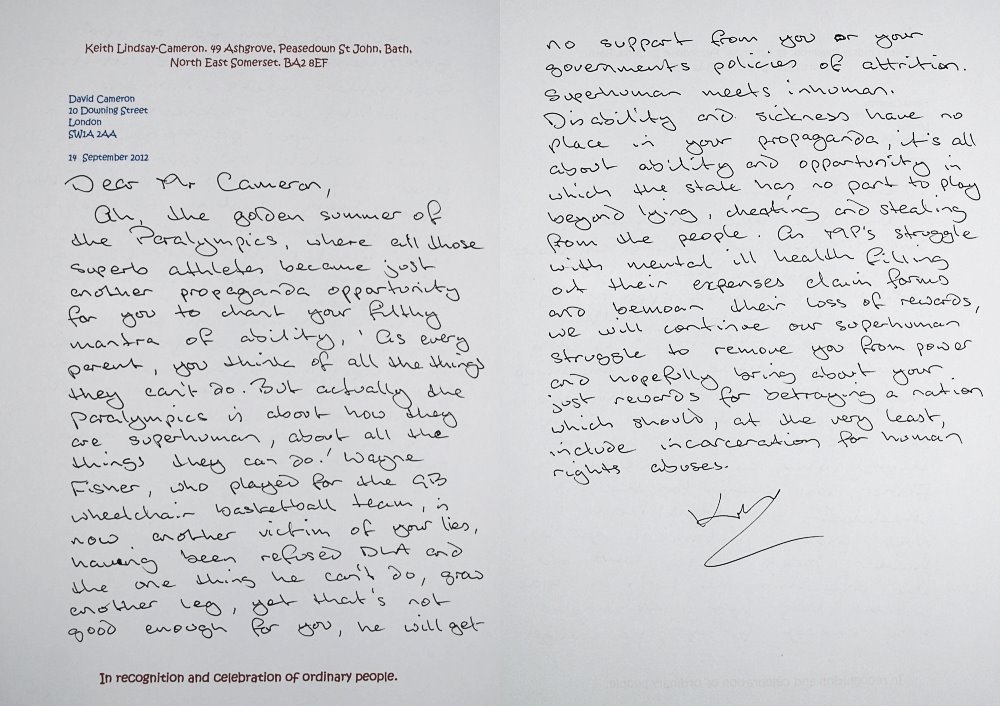 Keith Lindsay-Cameron. 49 Ashgrove, Peasedown St John, Bath,
North East Somerset. BA2 8EF
David Cameron
10 Downing Street
London
SW1A 2AA
14 September 2012
Dear Mr Cameron,
Ah, the golden summer of
the Paralympics, where all those
superb athletes became just
another propaganda opportunity
for you to chant your filthy
mantra of ability, 'As every
parent, you think of all the things
they can't do. But actually the
Paralympics is about how they
are superhuman, about all the
things they can do.' Wayne
Fisher, who played for the GB
wheelchair basketball team, is
now another victim of your lies,
having been refused DLA and
the one thing he can't do, grow
another leg, yet that's not
good enough for you, he will get
In recognition and celebration of ordinary people.
no support from you or your
governments policies of attrition.
Superhuman meets inhuman.
Disability and sickness have no
place in your propaganda, it's all
about ability and opportunity in
which the state has no part to play
beyond lying, cheating and stealing
from the people. As MP's struggle
with mental ill health filling
out their expenses claim forms
and bemoan their loss of rewards,
we will continue our superhuman
struggle to remove you from power
and hopefully bring about your
just rewards for betraying a nation
which should, at the very least,
include incarceration for human
rights abuses.